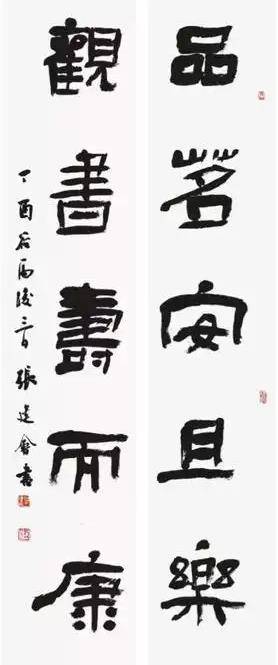 品茗安且樂
觀書壽而康
丁酉谷雨後三日張建會書